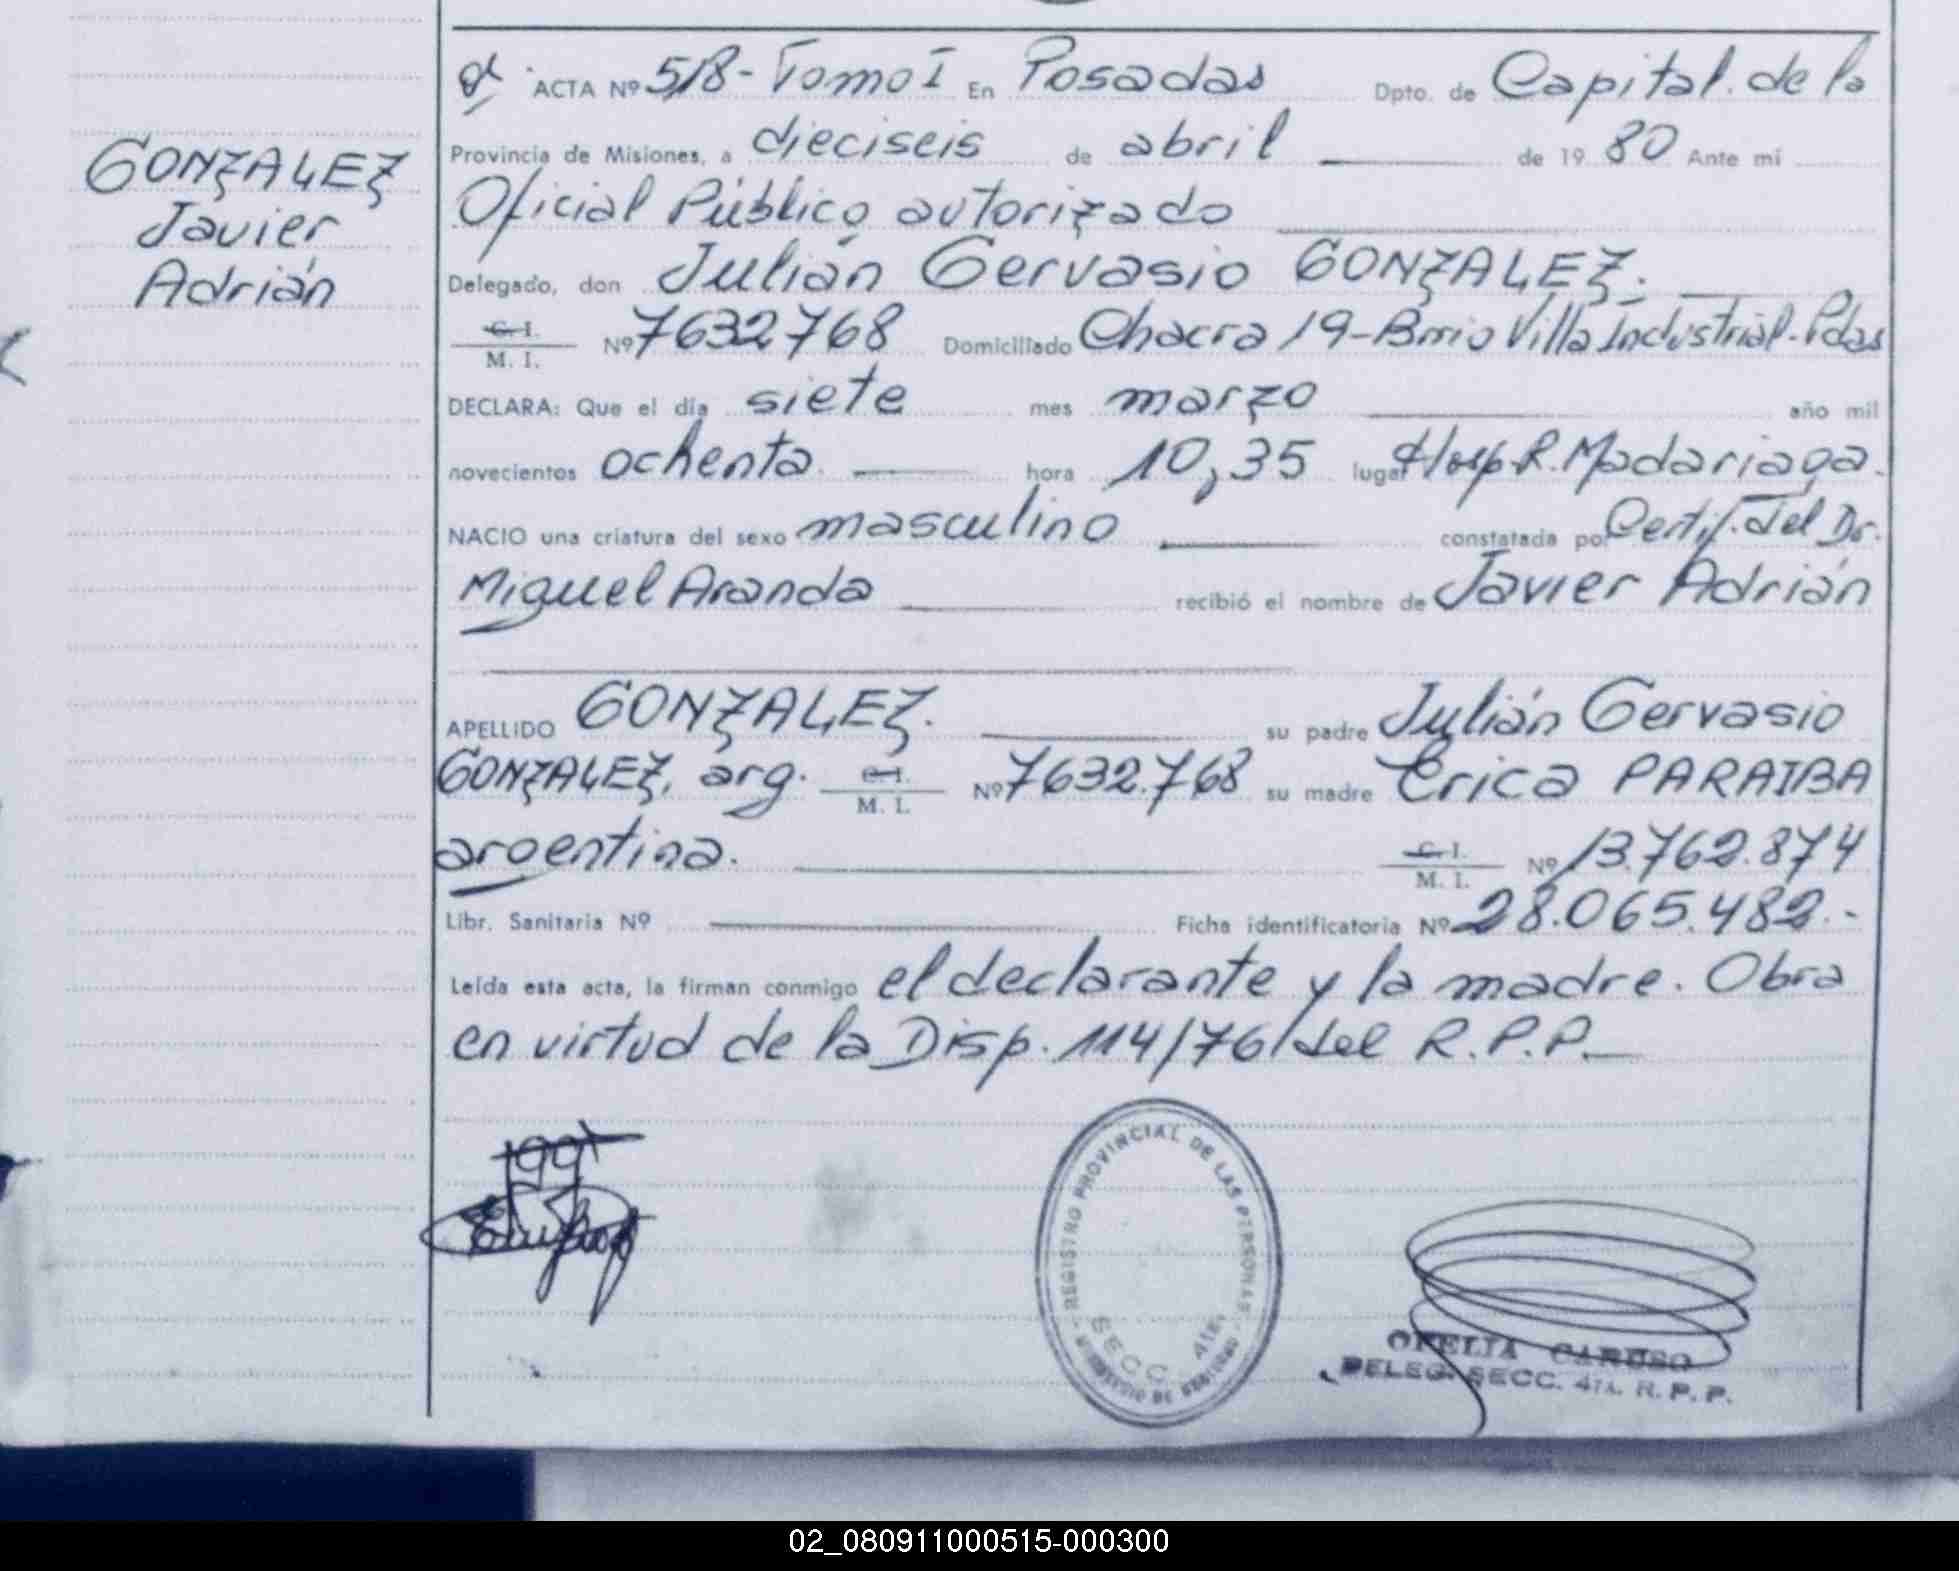 GONZALEZ
Javier
Adrián
ACTA Nº 518 - Tomo I En Posadas Dpto. de Capital. de la
Provincia de Misiones, a dieciseis de abril de 19 80 Ante mí
Oficial Público autorizado
Delegado, don Julián Gervasio GONZALEZ.
C. I.
M. I. Nº 7632768 Domiciliado Chacra 19 - Brrio Villa Industrial. Pdas
DECLARA: Que el día siete mes marzo año mil
novecientos ochenta. hora 10,35 lugar Hosp. R. Madariaga.
NACIO una criatura del sexo masculino constatada por Certif. del Dr.
Miguel Aranda recibió el nombre de Javier Adrián
APELLIDO GONZALEZ. su padre Julián Gervasio
GONZALEZ, arg. C. I. M. I. Nº 7632.768 su madre Erica PARAIBA
argentina. C. I. M. I. Nº 13.762.874
Libr. Sanitaria Nº Ficha identificatoria Nº 28.065.482.-
Leída esta acta, la firman conmigo el declarante y la madre. Obra
en virtud de la Disp. 114/76 del R.P.P.
REGISTRO PROVINCIAL DE LAS PERSONAS
SECC. 4ta.
OFELIA CARUSO
DELEG. SECC. 4TA. R. P. P.
02_080911000515-000300